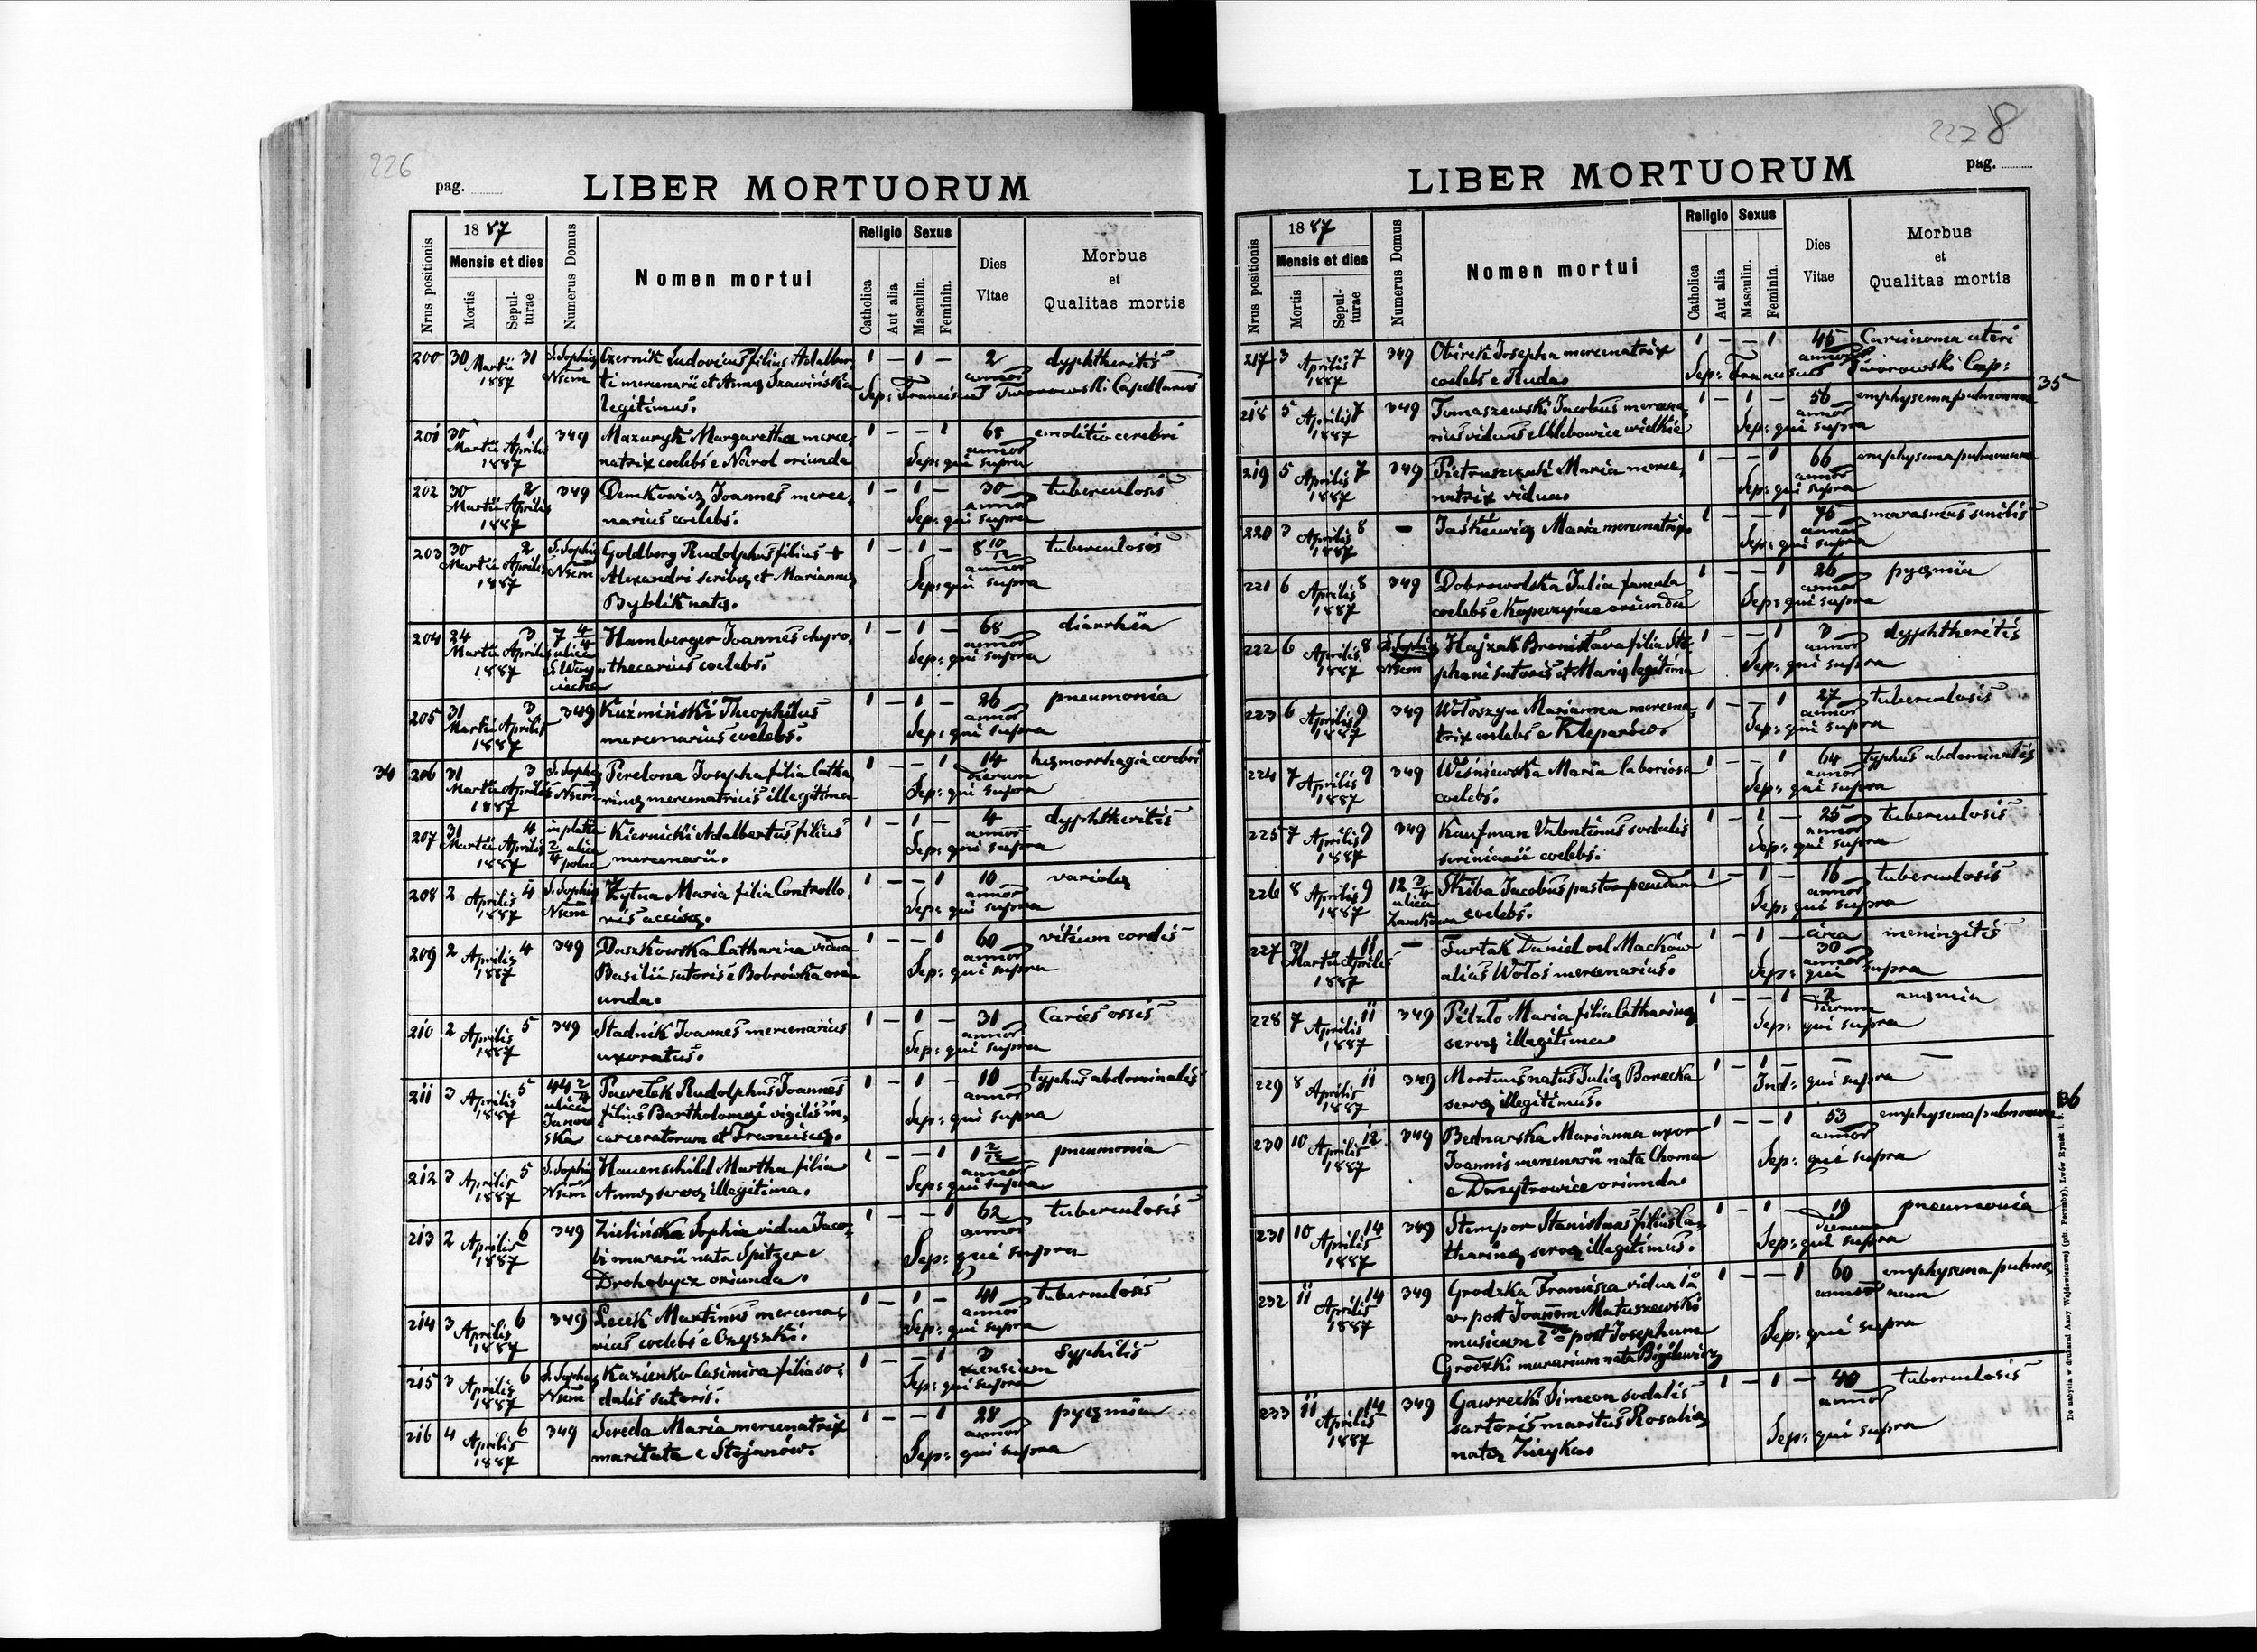 226
pag.
LIBER MORTUORUM
Nrus positionis
1887
Mensis et dies
Mortis
Sepul-
turae
Numerus Domus
Nomen mortui
Religio
Catholica
Aut alia
Sexus
Masculin.
Feminin.
Dies
Vitae
Morbus
et
Qualitas mortis
200 30 Martii 31 S. Sophię Czernik Ludovicus filius Adalber 1 – 1 – 2 dyphtheritis
1887 Nsem ti mercenarii et Annę Szawińska annor
legitimus. Sep: Franciscus Tworowski Capellanus
201 30 1 349 Mazuryk Margaretha merce, 1 – – 1 68 emolitio cerebri
Martii Aprilis natrix coelebs e Narol oriunda annor
1887 Sep: qui supra
202 30 2 349 Demkowicz Joannes merce, 1 – 1 – 30 tuberculosis
Martii Aprilis narius coelebs. annor
1887 Sep: qui supra
203 30 2 S. Sophię Goldberg Rudolphus filius + 1 – 1 – 8 10/12 tuberculosis
Martii Aprilis Nsem Alexandri scribę et Mariannę annor
1887 Byblik natę. Sep: qui supra
204 24 3 7 4/4 Hamberger Joannes chyro, 1 – 1 – 68 diarrhëa
Martii Aprilis ulica thecarius coelebs. annor
1887 S. Woy Sep: qui supra
ciecha
205 31 3 349 Kuźmiński Theophilus 1 – 1 – 26 pneumonia
Martii Aprilis mercenarius coelebs. annor
1887 Sep: qui supra
34
206 31 3 S. Sophię Perelona Josepha filia Catha 1 – – 1 14 hęmorrhagia cerebri
Martii Aprilis Nsem rinę mercenatricis illegitima dierum
1887 Sep: qui supra
207 31 4 in platea Kiernicki Adalbertus filius 1 – 1 – 4 dyphtheritis
Martii Aprilis 2/4 ulica mercenarii. annor
1887 polna Sep: qui supra
208 2 Aprilis 4 S. Sophię Żytna Maria filia Controllo, 1 – – 1 10 variolę
1887 Nsem ris accisę. annor
Sep: qui supra
209 2 Aprilis 4 349 Daszkowska Catharina vidua 1 – – 1 60 vitium cordis
1887 Basilii sutoris e Bobrówka ori annor
unda. Sep: qui supra
210 2 Aprilis 5 349 Stadnik Joannes mercenarius 1 – 1 – 31 Caries ossis
1887 uxoratus. annor
Sep: qui supra
211 3 Aprilis 5 44 2/4 Pawelek Rudolphus Joannes 1 – 1 – 10 typhus abdominalis
1887 ulica filius Bartholomęi vigilis in, annor
Janow carceratorum et Franciscę. Sep: qui supra
ska
212 3 Aprilis 5 S. Sophię Hauenschild Martha filia 1 – – 1 1 2/12 pneumonia
1887 Nsem Annę servę illegitima. annor
Sep: qui supra
213 2 Aprilis 6 349 Zielińska Sophia vidua Jaco, 1 – – 1 62 tuberculosis
1887 bi murarii nata Spitzer e annor
Drohobycz oriunda. Sep: qui supra
214 3 Aprilis 6 349 Lecek Martinus mercena, 1 – 1 – 40 tuberculosis
1887 rius coelebs e Czyszki. annor
Sep: qui supra
215 3 Aprilis 6 S. Sophię Kazienko Casimira filia so, 1 – – 1 3 Syphilis
1887 Nsem dalis sutoris. mensium
Sep: qui supra
216 4 Aprilis 6 349 Sereda Maria mercenatrix 1 – – 1 28 pyęmia
1887 maritata e Stojanów. annor
Sep: qui supra
227 8
LIBER MORTUORUM
pag.
Nrus positionis
1887
Mensis et dies
Mortis
Sepul-
turae
Numerus Domus
Nomen mortui
Religio
Catholica
Aut alia
Sexus
Masculin.
Feminin.
Dies
Vitae
Morbus
et
Qualitas mortis
217 3 Aprilis 7 349 Obirek Josepha mercenatrix 1 – – 1 45 Carcinoma uteri
1887 coelebs e Ruda. annor
Sep: Franciscus Tworowski Cap:
35
218 5 Aprilis 7 349 Tomaszewski Jacobus merce, 1 – 1 – 56 emphysema pulmonum
1887 rius viduus e Chlebowice wielkie annor
Sep: qui supra
219 5 Aprilis 7 349 Pietruszczak Maria merce, 1 – – 1 66 emphysema pulmonum
1887 natrix vidua. annor
Sep: qui supra
220 3 Aprilis 8 – Jaśkiewicz Maria mercenatrix 1 – – 1 76 marasmus senilis
1887 annor
Sep: qui supra
221 6 Aprilis 8 349 Dobrowolska Julia famula 1 – – 1 26 pyęmia
1887 coelebs e Kopeczyńce oriunda annor
Sep: qui supra
222 6 Aprilis 8 S. Sophię Hajzak Bronislava filia Ste 1 – – 1 3 dyphtheritis
1887 Nsem phani sutoris et Marię legitima annor
Sep: qui supra
223 6 Aprilis 9 349 Wołoszyn Marianna mercena, 1 – – 1 27 tuberculosis
1887 trix coelebs e Kleparów. annor
Sep: qui supra
224 7 Aprilis 9 349 Wiśniewska Maria laboriosa 1 – – 1 64 typhus abdominalis
1887 coelebs. annor
Sep: qui supra
225 7 Aprilis 9 349 Kaufman Valentinus sodalis 1 – 1 – 25 tuberculosis
1887 scriniarii coelebs. annor
Sep: qui supra
226 8 Aprilis 9 12 3/4 Skiba Jacobus pastor pecudum 1 – 1 – 16 tuberculosis
1887 ulica coelebs. annor
Zamkowa Sep: qui supra
227 31 11 – Furtak Daniel vel Macków 1 – 1 – circa meningitis
Martii Aprilis alias Wołos mercenarius. 30
1887 annor
Sep: qui supra
228 7 Aprilis 11 349 Pelzlo Maria filia Catharinę 1 – – 1 2 anęmia
1887 servę illegitima dierum
Sep: qui supra
229 8 Aprilis 11 349 Mortuus natus Julię Borecka 1 – 1 – – –
1887 servę illegitimus. Ind: qui supra
36
230 10 Aprilis 12 349 Bednarska Marianna uxor 1 – – 1 53 emphysema pulmonum
1887 Joannis mercenarii nata Choma annor
e Dmytrowice oriunda. Sep: qui supra
231 10 Aprilis 14 349 Stempor Stanislaus filius Ca, 1 – 1 – 19 pneumonia
1887 tharinę servę illegitimus. dierum
Sep: qui supra
232 11 Aprilis 14 349 Grodzka Francisca vidua 1o 1 – – 1 60 emphysema pulmo,
1887 v. post Joannem Matuszewski annor num
musicum 2do post Josephum Sep: qui supra
Grodzki murarium nata Bigilewicz
233 11 Aprilis 14 349 Gawrecki Simeon sodalis 1 – 1 – 40 tuberculosis
1887 sartoris maritus Rosalię annor
natę Zieyka Sep: qui supra
Do nabycia w drukarni Anny Wajdowiczowej (pdr. Poremby), Lwów Rynek l.